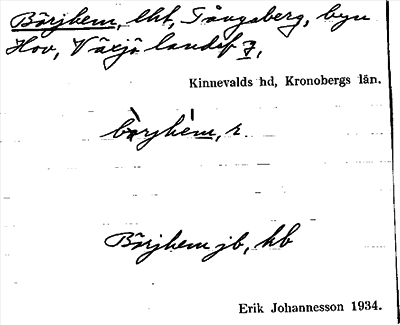 Börjhem, lht, Tångsberg, byn
Hov, Växjö landsf 7,
Kinnevalds hd, Kronobergs län.
bòrjhe'm, r.
Börjhem jb, hb
Erik Johannesson 1934.